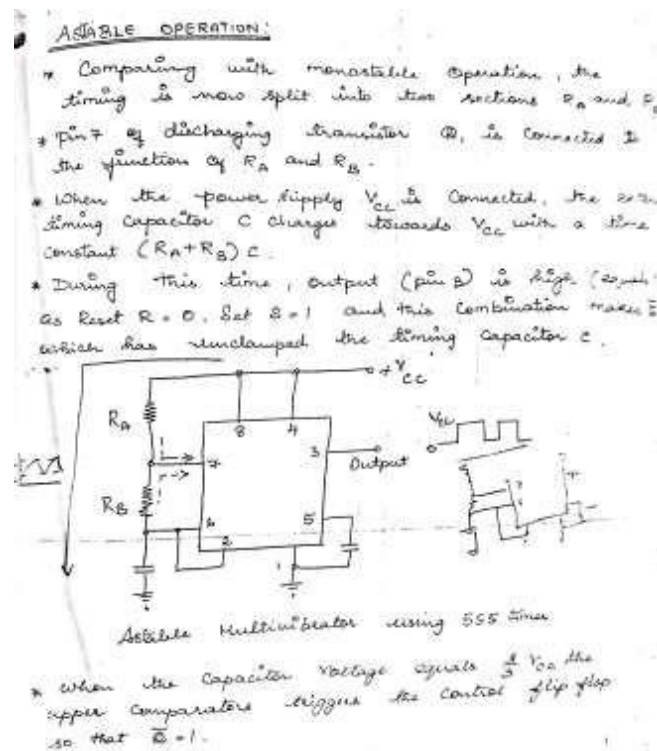 ASTABLE OPERATION:
* Comparing with monostable operation, the
timing is now split into two sections RA and
* Pin 7 of discharging transistor Q1 is connected to
the junction of RA and RB.
* When the power supply VCC is connected, the
timing capacitor C charges towards VCC with a time
constant (RA+RB) C.
* During this time, output (pin 3) is high
as Reset R = 0, Set S = 1 and this combination makes
which has unclamped the timing capacitor C.
+VCC
RA
8
4
VCC
7
3
Output
RB
6
5
2
1
Astable Multivibrator using 555 timer
* When the capacitor voltage equals 2/3 VCC the
upper comparator triggers the control flip flop
so that Q̅ = 1.